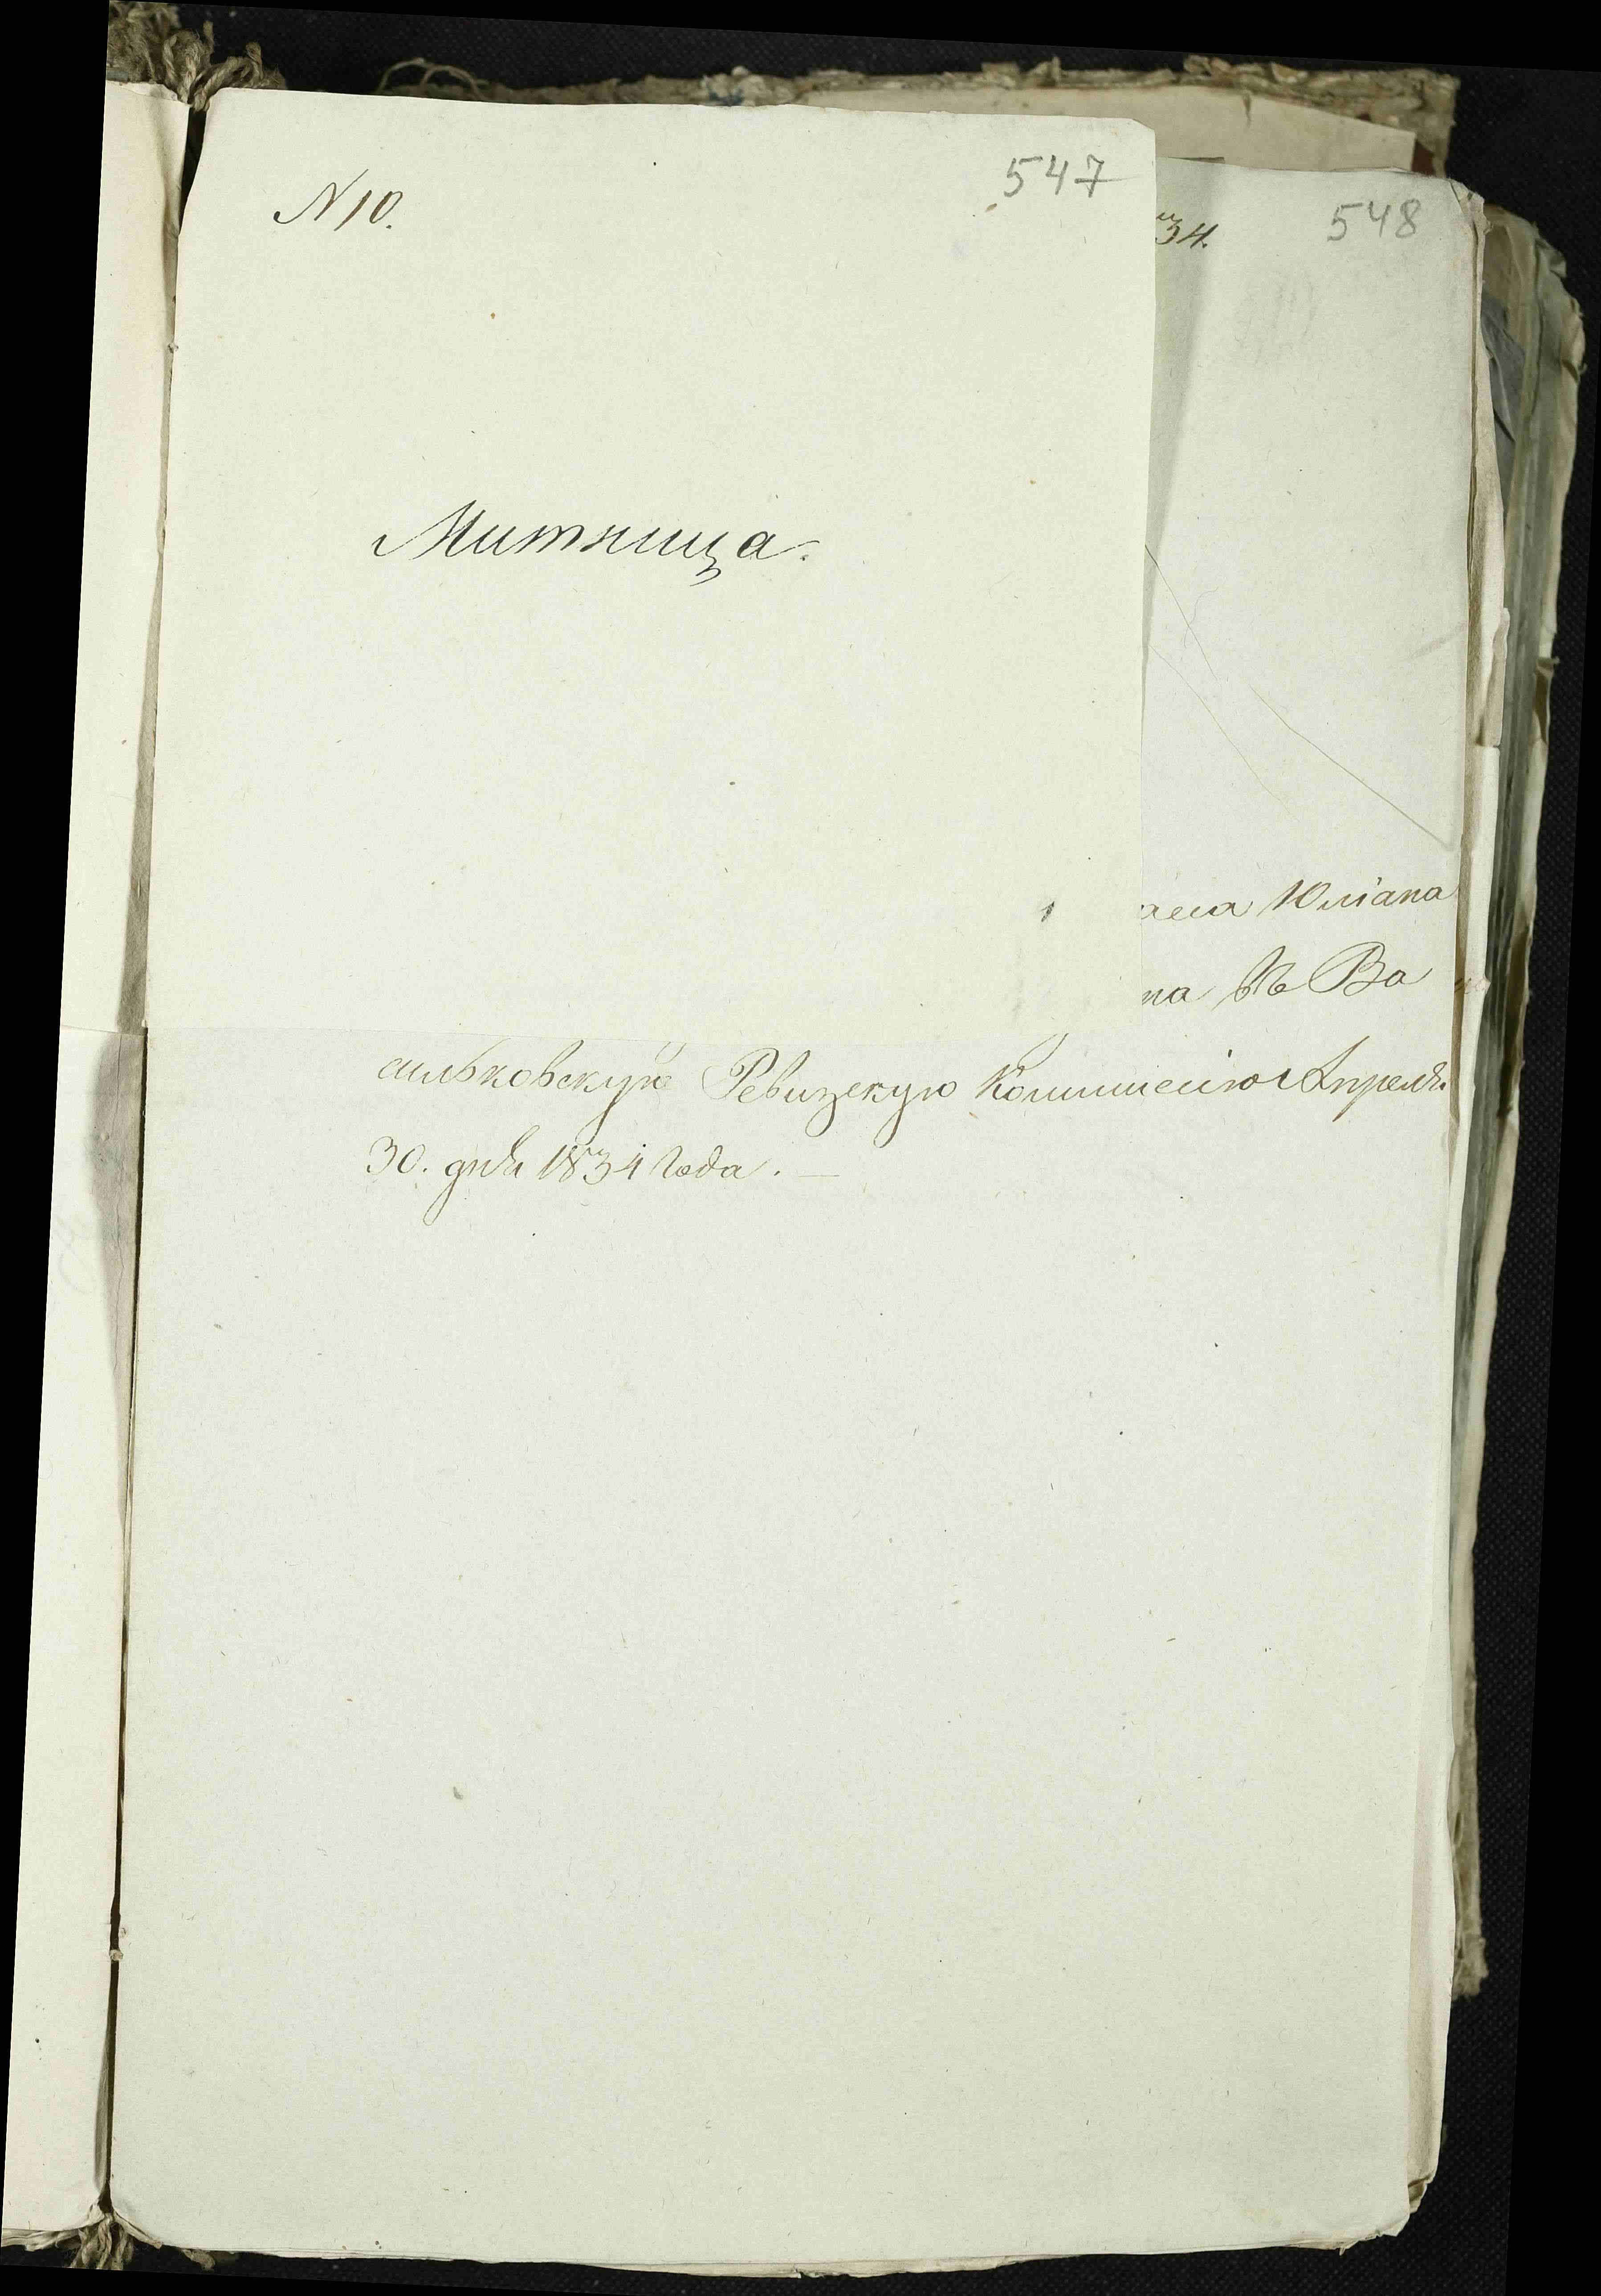 N 10.
547
34.
548
Митница.
Юліана
на въ Ва
сильковскую Ревизскую Коммисію Апреля
30. дня 1834 года. —